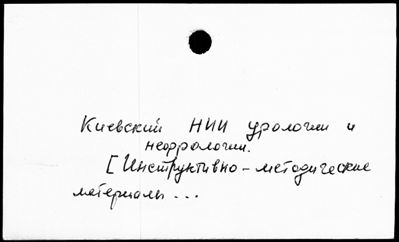 Киевский НИИ урологии и
нефрологии.
[Инструктивно-методические
материалы ...